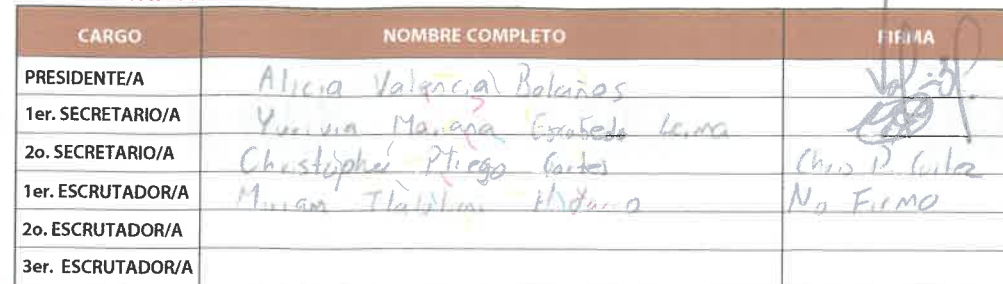 CARGO NOMBRE COMPLETO FIRMA
PRESIDENTE/A Alicia Valencia Bolaños
1er. SECRETARIO/A Mariana Escobedo
2o. SECRETARIO/A Christopher Cortes Chris P. Cortez
1er. ESCRUTADOR/A Miriam No Firmo
2o. ESCRUTADOR/A
3er. ESCRUTADOR/A